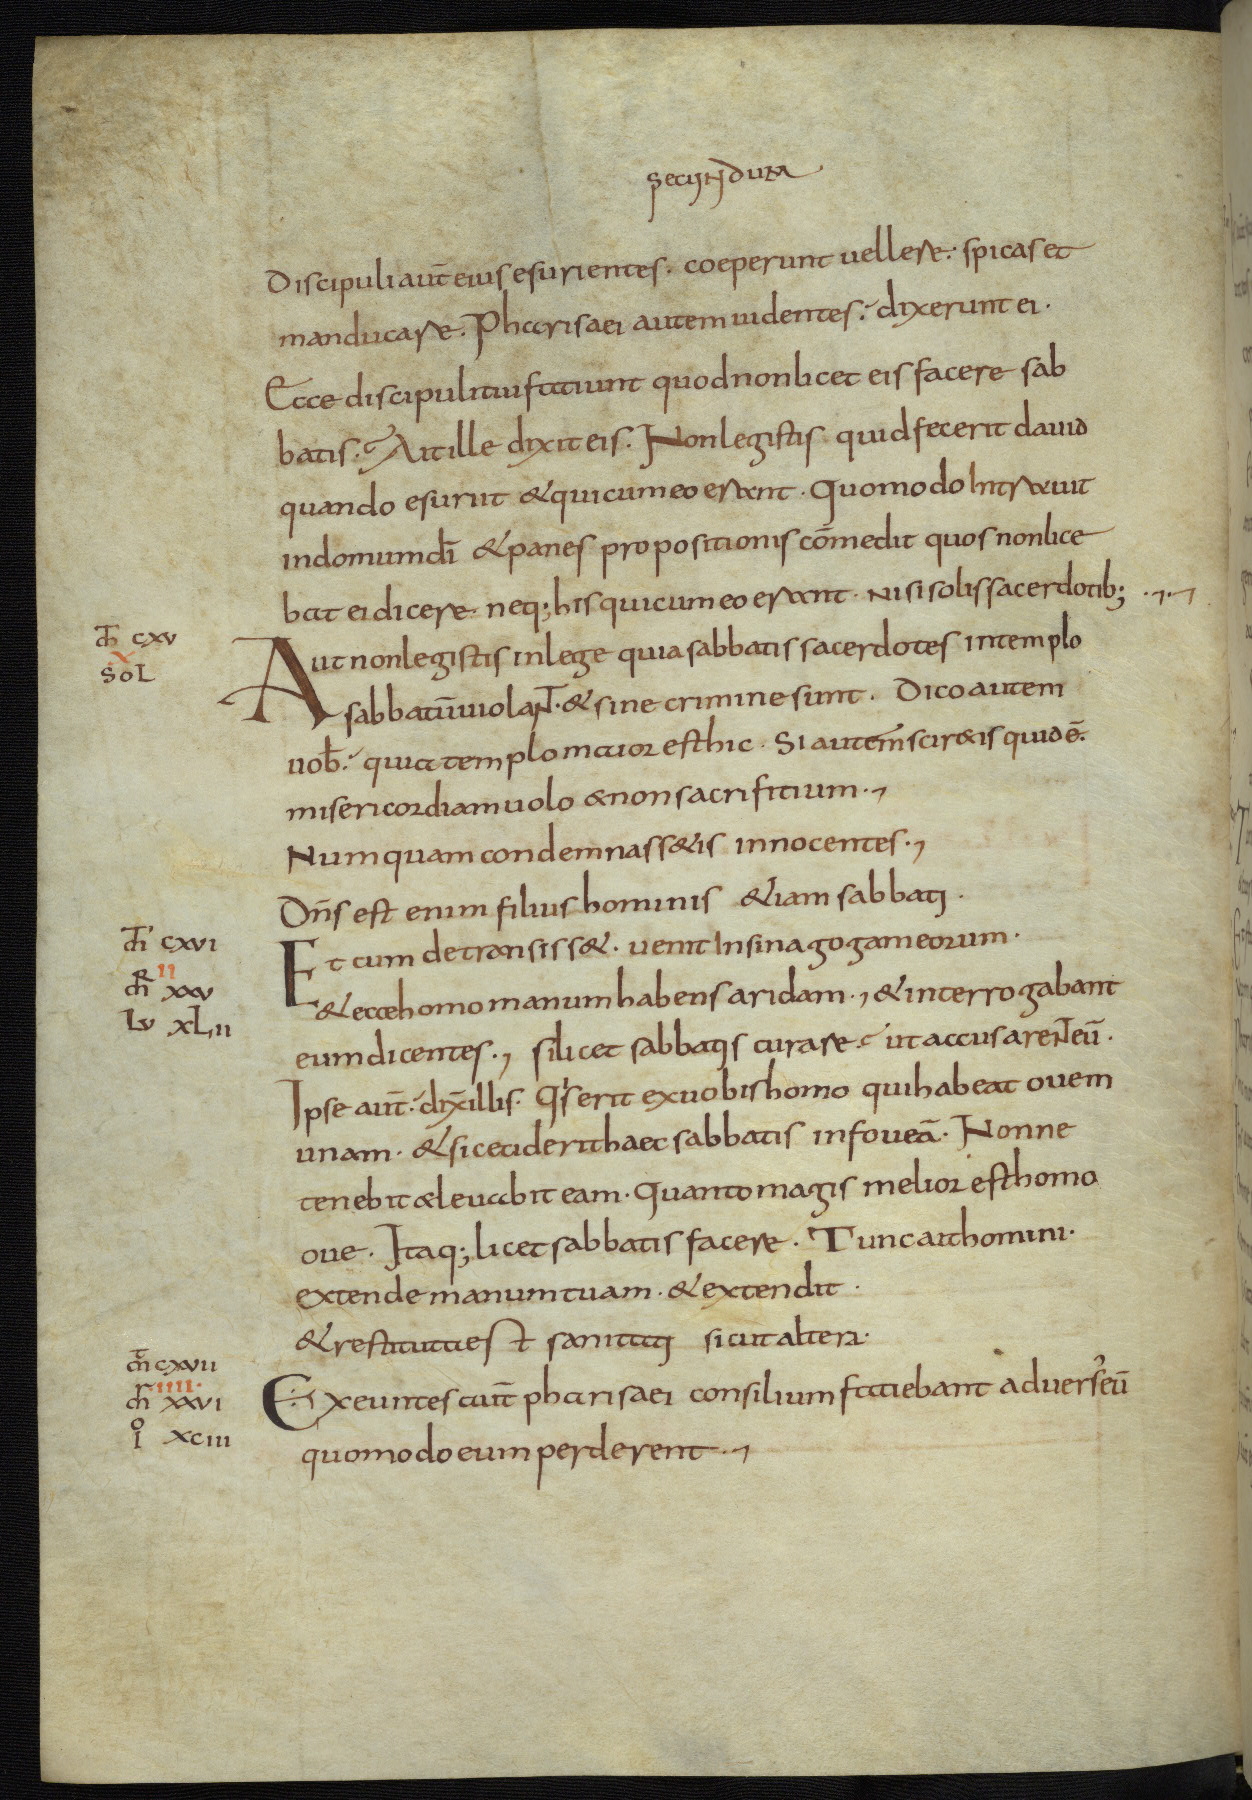 secundum
Discipuli aut̄ eius esurientes. coeperunt uellere. spicas et
manducare. Pharisaei autem uidentes. dixerunt ei.
Ecce discipuli tui faciunt quod non licet eis facere sab
batis. At ille dixit eis. Non legistis quid fecerit dauid
quando esuriit & qui cum eo erant. Quomodo Intrauit
in domum dī & panes propositionis cōmedit quos non lice
bat ei dicere neq; his qui cum eo erant. nisi solis sacerdotib;
m̄ cxv
x
SOL
Aut non legistis in lege quia sabbatis sacerdotes in templo
sabbatū uiolant. & sine crimine sunt. Dico autem
uob̄. quia templo maior est hic. Si autem scir&is quid ē.
misericordiam uolo & non sacrifitium.,
Numquam condemnass&is innocentes.,
Dn̄s est enim filius hominis &iam sabbati.
m̄ cxvi
ii
m̄r xxv
Lu xLii
Et cum detransiss&. uenit In sinagogam eorum.
& ecce homo manum habens aridam., & interrogabant
eum dicentes., si licet sabbatis curare. ut accusarent eū.
Ipse aut̄. dix̄ illis. Qis erit ex uobis homo qui habeat ouem
unam. & si ceciderit haec sabbatis in foueā. Nonne
tenebit & leuabit eam. Quanto magis melior est homo
oue. Itaq; licet sabbatis facere. Tunc ait homini.
extende manum tuam. & extendit.
& restituta est sanitati sicut altera.
m̄ cxvii
iiii
m̄r xxvi
io xciii
Exeuntes aut̄ pharisaei consilium faciebant aduers' eū
quomodo eum perderent.,